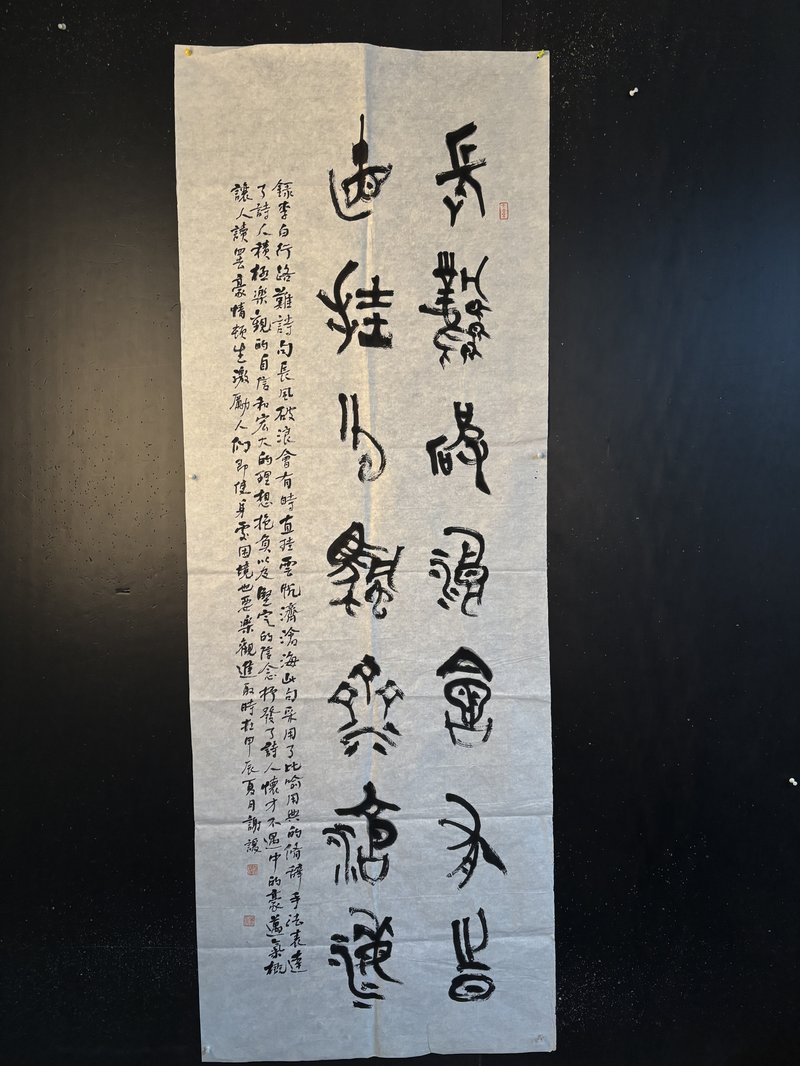 長風破浪會有時
直挂雲帆濟滄海
錄李白行路難詩句長風破浪會有時直挂雲帆濟滄海此句采用了比喻用典的修辭手法表達
了詩人積極樂觀的自信和宏大的理想抱負以及堅定的信念抒發了詩人懷才不遇中的豪邁氣概
讓人讀罢豪情頓生激勵人們即使身處困境也要樂觀進取時在甲辰夏月謝